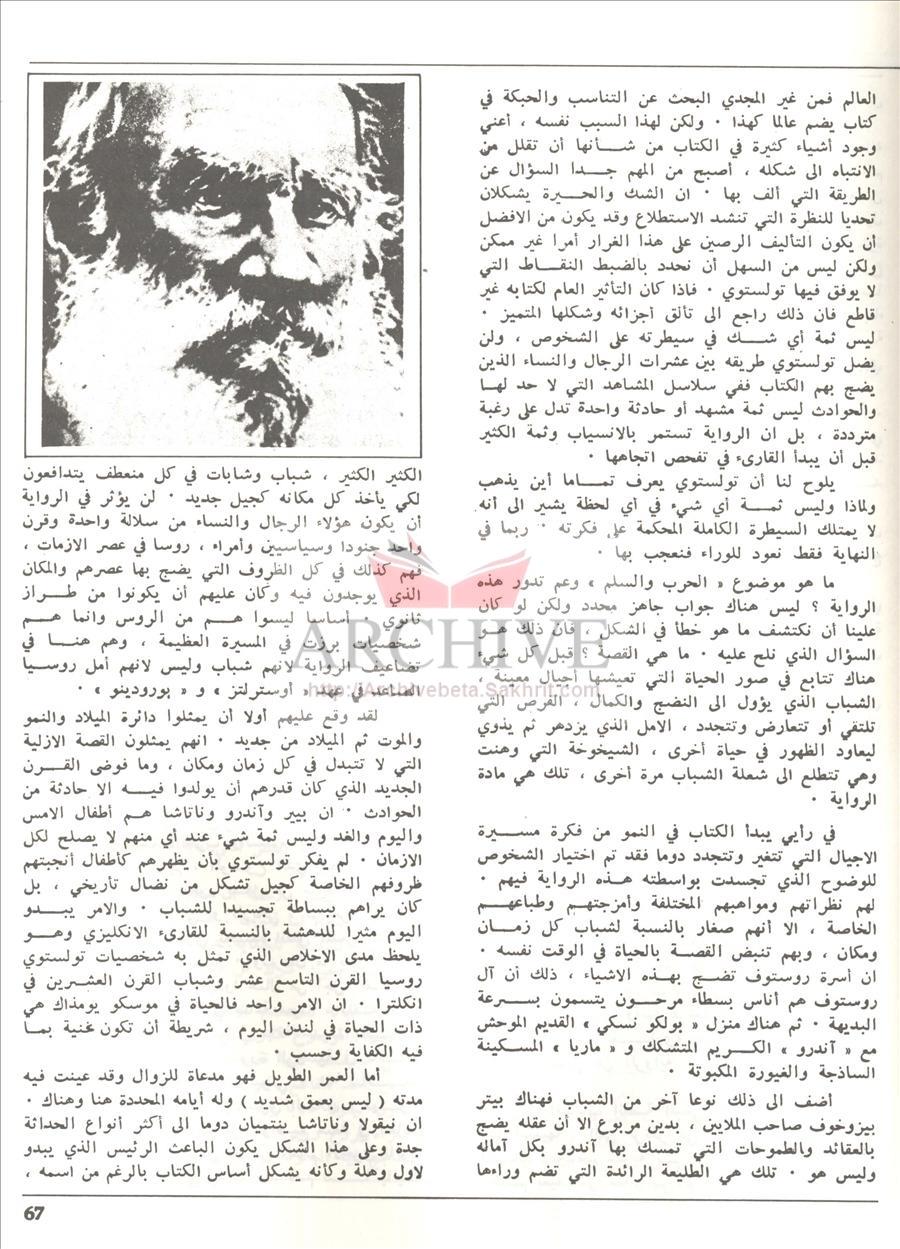 العالم فمن غير المجدي البحث عن التناسب والحبكة في
كتاب يضم عالما كهذا ٠ ولكن لهذا السبب نفسه ، أعني
وجود أشياء كثيرة في الكتاب من شـــأنها أن تقلل من
الانتباه الى شكله ، أصبح من المهم جـــدا السؤال عن
الطريقة التي ألف بها ٠ ان الشك والحـــيرة يشكلان
تحديا للنظرة التي تنشد الاستطلاع وقد يكون من الافضل
أن يكون التأليف الرصين على هذا الغرار أمرا غير ممكن
ولكن ليس من السهل أن نحدد بالضبط النقـــاط التي
لا يوفق فيها تولستوي ٠ فاذا كان التأثير العام لكتابه غير
قاطع فان ذلك راجع الى تألق أجزائه وشكلها المتميز ٠
ليس ثمة أي شـــك في سيطرته على الشخوص ، ولن
يضل تولستوي طريقه بين عشرات الرجال والنساء الذين
يضج بهم الكتاب ففي سلاسل المشاهد التي لا حد لهـا
والحوادث ليس ثمة مشهد أو حادثة واحدة تدل على رغبة
مترددة ، بل ان الرواية تستمر بالانسياب وثمة الكثير
قبل أن يبدأ القارىء في تفحص اتجاهها ٠
يلوح لنا أن تولستوي يعرف تمـــاما أين يذهب
ولماذا وليس ثمـــة أي شيء في أي لحظة يشير الى أنه
لا يمتلك السيطرة الكاملة المحكمة على فكرته ٠ ربما في
النهاية فقط نعود للوراء فنعجب بها ٠
ما هو موضوع « الحرب والسلم » وعم تدور هذه
الرواية ؟ ليس هناك جواب جاهز محدد ولكن لو كان
علينا أن نكتشف ما هو خطأ في الشكل ، فان ذلك هـو
السؤال الذي نلح عليه ٠ ما هي القصة ؟ قبل كل شيء
هناك تتابع في صور الحياة التي تعيشها أجيال معينة ،
الشباب الذي يؤول الى النضج والكمال ، الفرص التي
تلتقي أو تتعارض وتتجدد ، الامل الذي يزدهر ثم يذوي
ليعاود الظهور في حياة أخرى ، الشيخوخة التي وهنت
وهي تتطلع الى شعلة الشباب مرة أخرى ، تلك هي مادة
الرواية ٠
في رأيي يبدأ الكتاب في النمو من فكرة مســـيرة
الاجيال التي تتغير وتتجدد دوما فقد تم اختيار الشخوص
للوضوح الذي تجسدت بواسطته هـــذه الرواية فيهم ٠
لهم نظراتهم ومواهبهم المختلفة وأمزجتهـــم وطباعهـــم
الخاصة ، الا أنهم صغار بالنسبة لشباب كل زمـــان
ومكان ، وبهم تنبض القصـة بالحياة في الوقت نفسه ٠
ان أسرة روستوف تضـــج بهـــذه الاشياء ، ذلك أن آل
روستوف هم أناس بسطاء مرحـــون يتسمون بســـرعة
البديهة ٠ ثم هناك منزل « بولكو نسكي » القديم الموحش
مع « آندرو » الكـــريم المتشكك و « ماريا » المسـكينة
الساذجة والغيورة المكبوتة ٠
اضف الى ذلك نوعا آخر من الشباب فهناك بيتر
بيزوخوف صاحب الملايين ، بدين مربوع الا أن عقله يضج
بالعقائد والطموحات التي تمسك بها آندرو بكل آماله
وليس هو ٠ تلك هي الطليعة الرائدة التي تضم وراءها
الكثير الكثير ، شباب وشابات في كل منعطف يتدافعون
لكي يأخذ كل مكانه كجيل جديد ٠ لن يؤثر في الرواية
أن يكون هؤلاء الرجال والنساء من سلالة واحدة وقرن
واحد جنودا وسياسيين وأمراء ، روسا في عصر الازمات ،
فهم كذلك في كل الظروف التي يضج بها عصرهم والمكان
الذي يوجدون فيه وكان عليهم أن يكونوا من طـــراز
ثانوي ٠ أساسا ليسوا هـــم من الروس وانما هـــم
شخصيات برزت في المسيرة العظيمة ، وهم هنـــا في
تضاعيف الرواية لانهم شباب وليس لانهم أمل روسـيا
الصاعد في عهد « أوسترلتز » و « بورودينو » ٠
لقد وقع عليهم أولا أن يمثلوا دائرة الميلاد والنمو
والموت ثم الميلاد من جديد ٠ انهم يمثلون القصة الازلية
التي لا تتبدل في كل زمان ومكان ، وما فوضى القـــرن
الجديد الذي كان قدرهم أن يولدوا فيـــه الا حادثة من
الحوادث ٠ ان بيير وآندرو وناتاشا هـــم أطفال الامس
واليوم والغد وليس ثمة شيء عند أي منهم لا يصلح لكل
الازمان ٠ لم يفكر تولستوي بأن يظهرهم كأطفال أنجبتهم
ظروفهم الخاصة كجيل تشكل من نضال تأريخي ، بل
كان يراهم ببساطة تجسيدا للشباب ٠ والامر يبـــدو
اليوم مثيرا للدهشة بالنسبة للقارىء الانكليزي وهـــو
يلحظ مدى الاخلاص الذي تمثل به شخصيات تولستوي
روسيا القرن التاسع عشر وشباب القرن العشـرين في
انكلترا ٠ ان الامر واحد فالحياة في موسكو يومذاك هي
ذات الحياة في لندن اليوم ، شريطة أن تكون غنية بمـا
فيه الكفاية وحسب ٠
أما العمر الطويل فهو مدعاة للزوال وقد عينت فيه
مدته ( ليس بعمق شديد ) وله أيامه المحددة هنا وهناك ٠
ان نيقولا وناتاشا ينتميان دوما الى أكثر أنواع الحداثة
جدة وعلى هذا الشكل يكون الباعث الرئيس الذي يبدو
لاول وهلة وكأنه يشكل أساس الكتاب بالرغم من اسمه ،
ARCHIVE
http://Archivebeta.Sakhrit.com
67